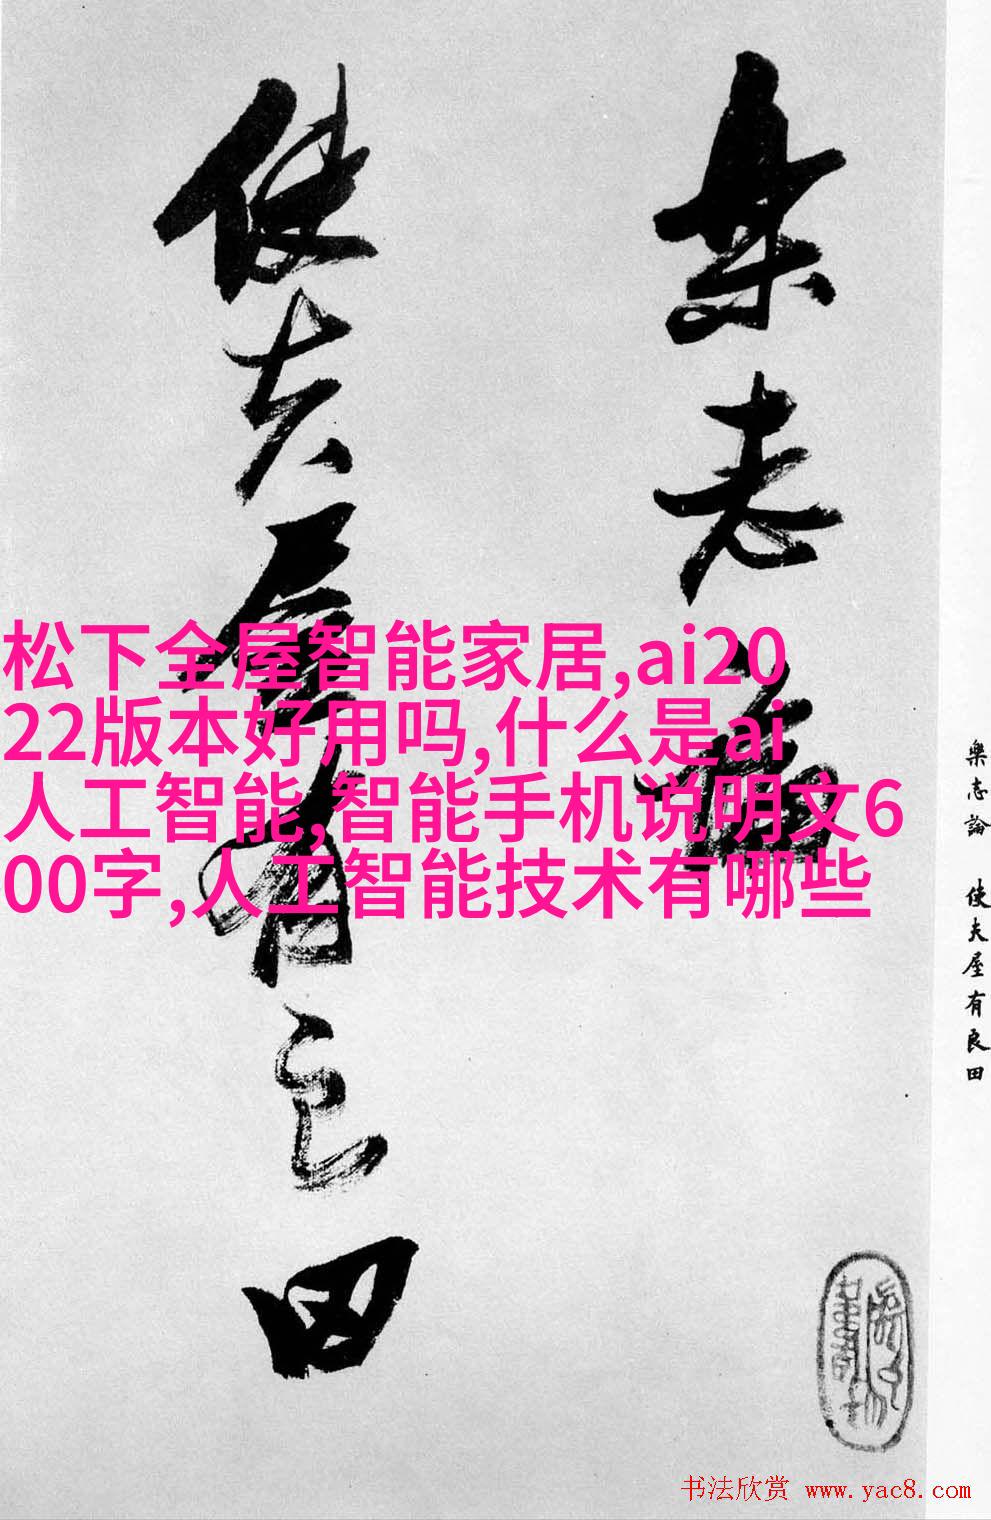 樂志論
使夫屋有良田
松下全屋智能家居,ai20
22版本好用吗,什么是ai
人工智能,智能手机说明文6
00字,人工智能技术有哪些
樂志論 使夫屋有良田
书法欣赏 www.yac8.com